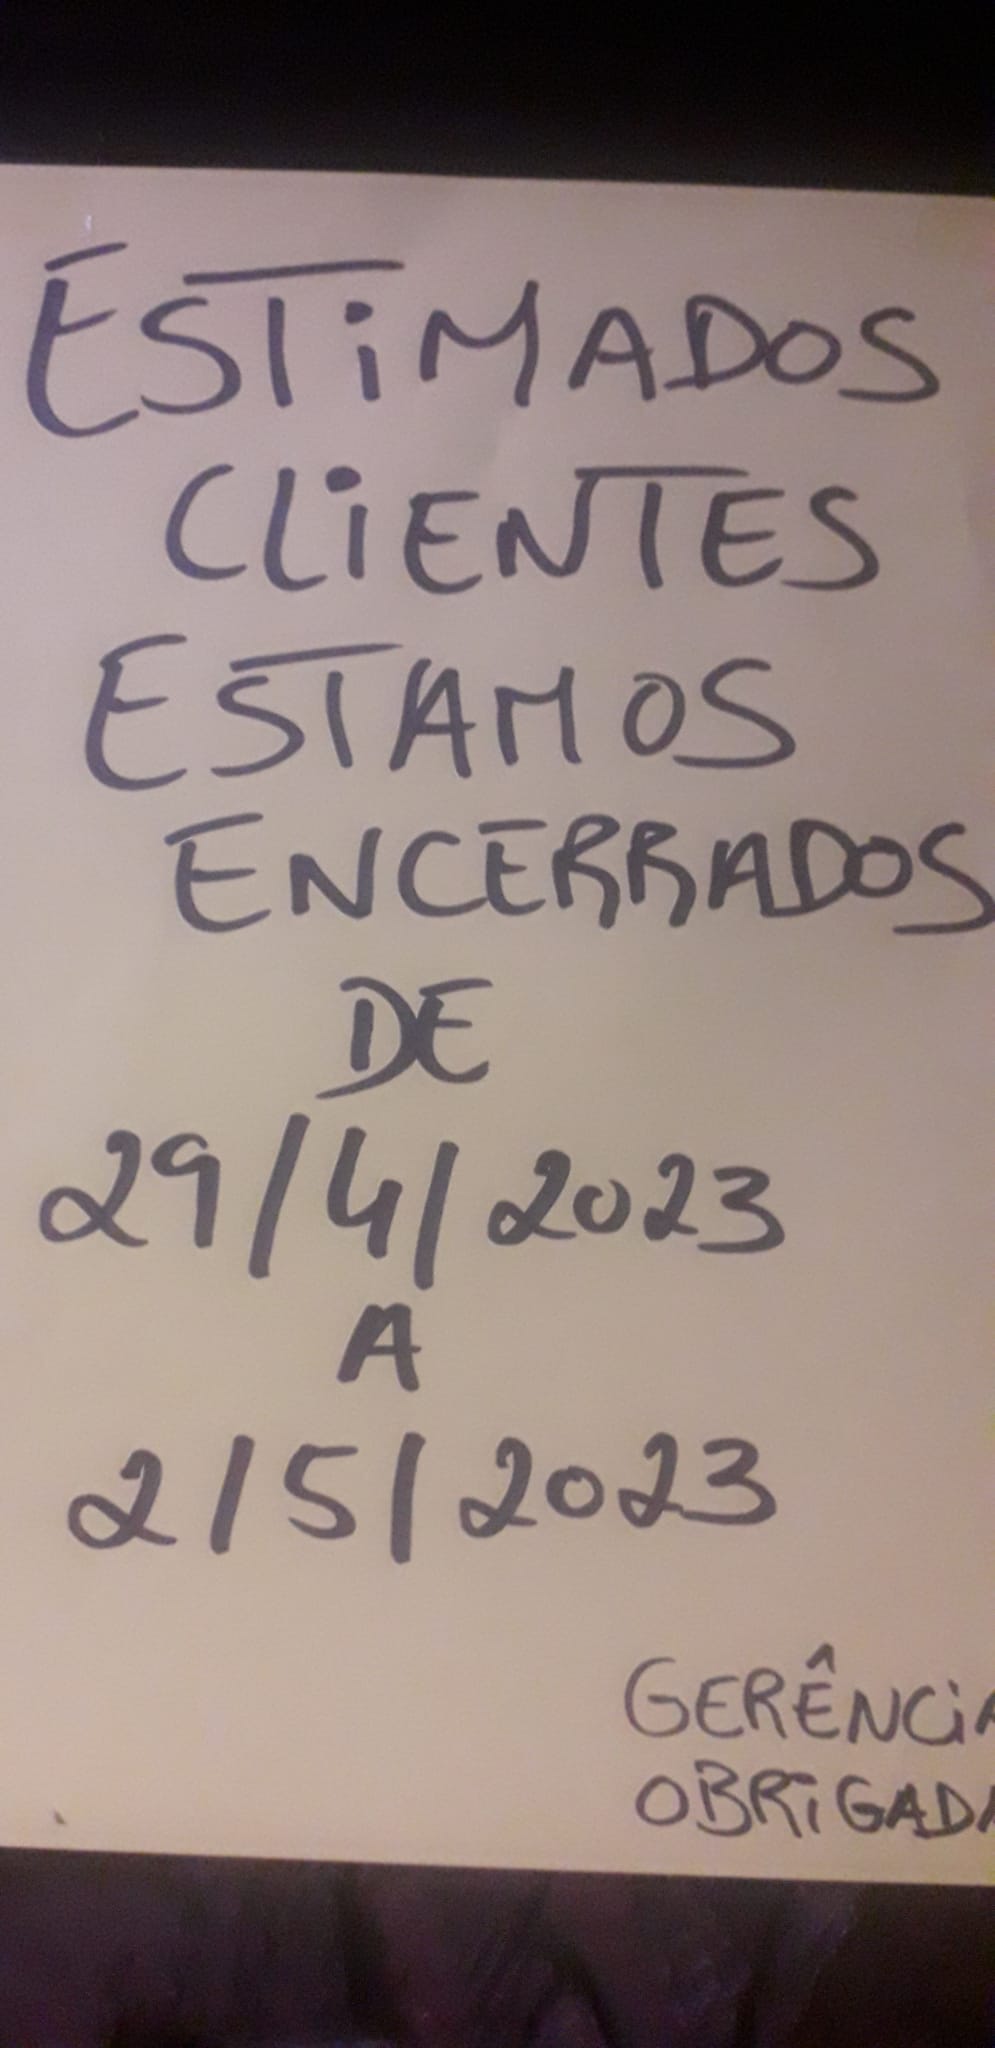 ESTIMADOS
CLIENTES
ESTAMOS
ENCERRADOS
DE
29/4/2023
A
2/5/2023
GERÊNCIA
OBRIGADA